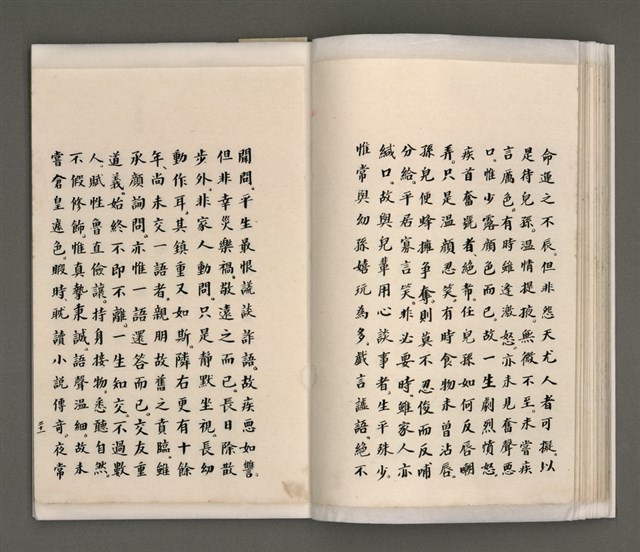 命運之不辰。但非怨天尤人者可擬。以
是待兒孫。溫情提掖。無微不至。未嘗疾
言厲色。有時雖逢激怒。亦未見奮聲惡
口。惟少露顏色而已。故一生劇烈憤怒。
疾首奮髭者。絕希。任兒孫如何反唇嘲
弄。只是溫顏忍笑。有時食物未曾沾唇。
孫兒便蜂擁爭奪。則莫不忍俊而反哺
分給。平居寡言笑。非必要時。雖家人亦
緘口。故與兒輩用心談事者。生平殊少。
惟常與幼孫嬉玩為多。戲言謔語。絕不
關問。平生最恨謊談詐語。故疾惡如讐。
但非幸災樂禍。敬遠之而已。長日除散
步外。非家人動問。只是靜默坐視。長幼
動作耳。其鎮重又如斯。隣右更有十餘
年。尚未交一語者。親朋故舊之賁臨。雖
承顏詢問。亦惟一語還答而已。交友重
道義。始終不即不離。一生知交。不過數
人。賦性魯直儉讓。持身接物悉聽自然。
不假修飾。惟真摯秉誠。語聲溫細。故未
嘗倉皇遽色。暇時。眈讀小說傳奇。夜常